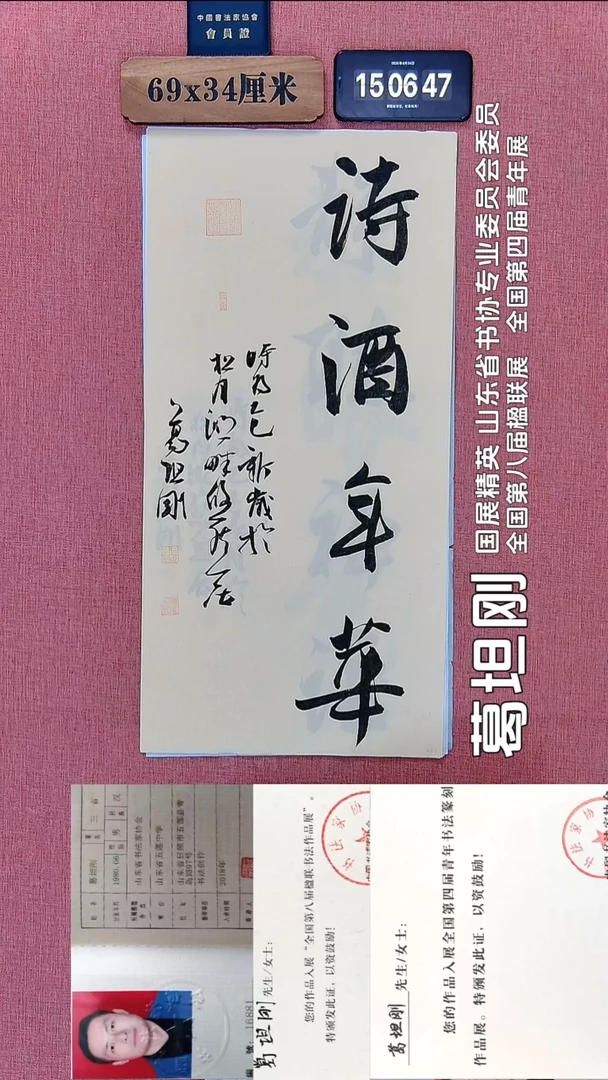 中國書法家協會
會員證
69x34厘米
15 06 47
詩酒年華
時乃乙巳新歲於
松月湖畔
葛坦剛
葛坦刚
国展精英 山东省书协专业委员会委员
全国第八届楹联展 全国第四届青年展
姓名 葛坦刚
性别 男
民族 汉
山东省书法家协会
山东省五莲中学
书法创作
2018年
编号：16881
葛坦刚 先生/女士：
您的作品入展“全国第八届楹联书法作品展”。
特颁发此证，以资鼓励！
葛坦刚 先生/女士：
您的作品入展全国第四届青年书法篆刻
作品展。特颁发此证，以资鼓励！